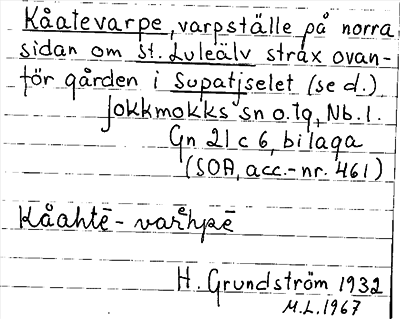 Kåatevarpe, varpställe på norra
sidan om St. Luleälv strax ovan-
för gården i Supatjselet (se d.)
Jokkmokks sn o. tg, Nb. l.
Gn 21 c 6, bilaga
(SOA, acc.-nr. 461)
Kåahtē-varᵉhpē
H. Grundström 1932
M.L. 1967